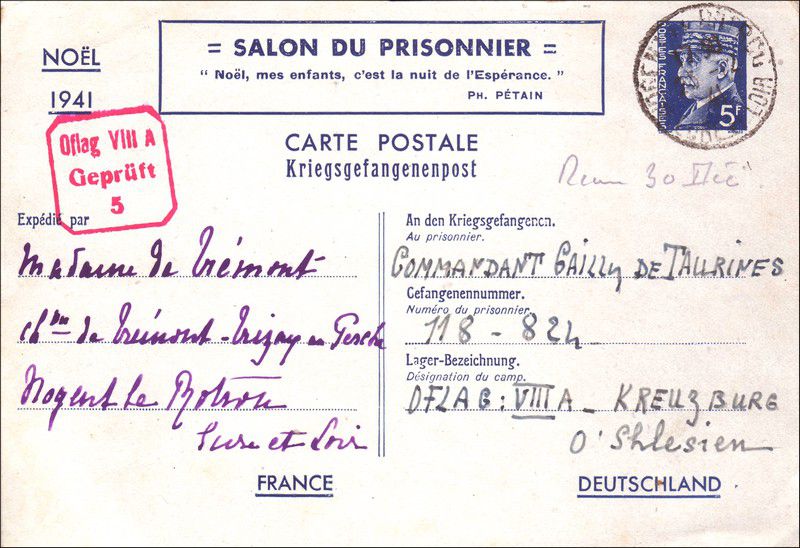 NOËL
1941
= SALON DU PRISONNIER =
“ Noël, mes enfants, c'est la nuit de l'Espérance. ”
PH. PÉTAIN
POSTES FRANÇAISES
5F
LOIR
Oflag VIII A
Geprüft
5
CARTE POSTALE
Kriegsgefangenenpost
30
Expédié par
Madame de Trémont
Chau de Trémont - Trizay au Perche
Nogent le Rotrou
Eure et Loir
FRANCE
An den Kriegsgefangenen.
Au prisonnier.
COMMANDANT GAILLY DE TAURINES
Gefangenennummer.
Numéro du prisonnier.
118 - 824
Lager-Bezeichnung.
Désignation du camp.
OFLAG : VIII A - KREUZBURG
O'Shlesien
DEUTSCHLAND